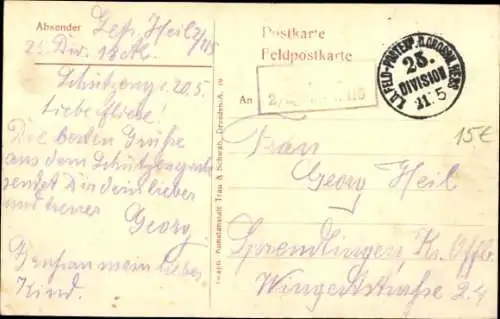 Absender Gefr. Heil 2/115
25. Div. 18 A.K.
Schützengr. 20.5.
Liebe
Die besten Grüße
aus dem Schützengrab
sendet Dir dein lieber
und treuer
Georg
mein liebes
Kind.
Graph. Kunstanstalt Trau & Schwab, Dresden-A.
Postkarte
Feldpostkarte
An
115
K.D. FELD-POSTEXP. D. GROSSH. HESS.
25.
DIVISION
21.5
15€
Frau
Georg Heil
Sprendlingen Kr. Offb.
Wingertstraße 24